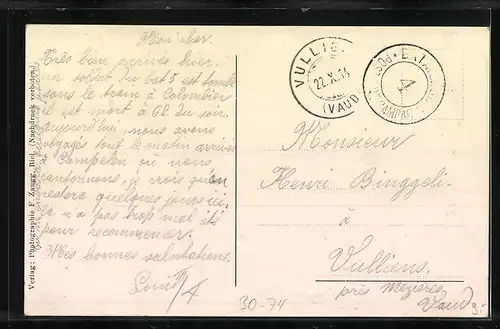 Mon cher.
Très bien arrivés hier,
un soldat du bat 5 est tombé
sous le train à Colombier
il est mort à 6h. du soir.
aujourd'hui, nous avons
voyagés tout le matin arrivés
à Campelen où nous
cantonnons, je crois qu'on
restera quelques jours ici.
Ce n'a pas trop mal été
pour recommencer.
Mes bonnes salutations.
Louis
Verlag: Photographie F. Zaugg, Biel. (Nachdruck verboten.)
VULLIENS
22.X.14
(VAUD)
POST
4
Monsieur
Henri Binggeli
à
Vulliens.
près Mezières
Vaud
30-74